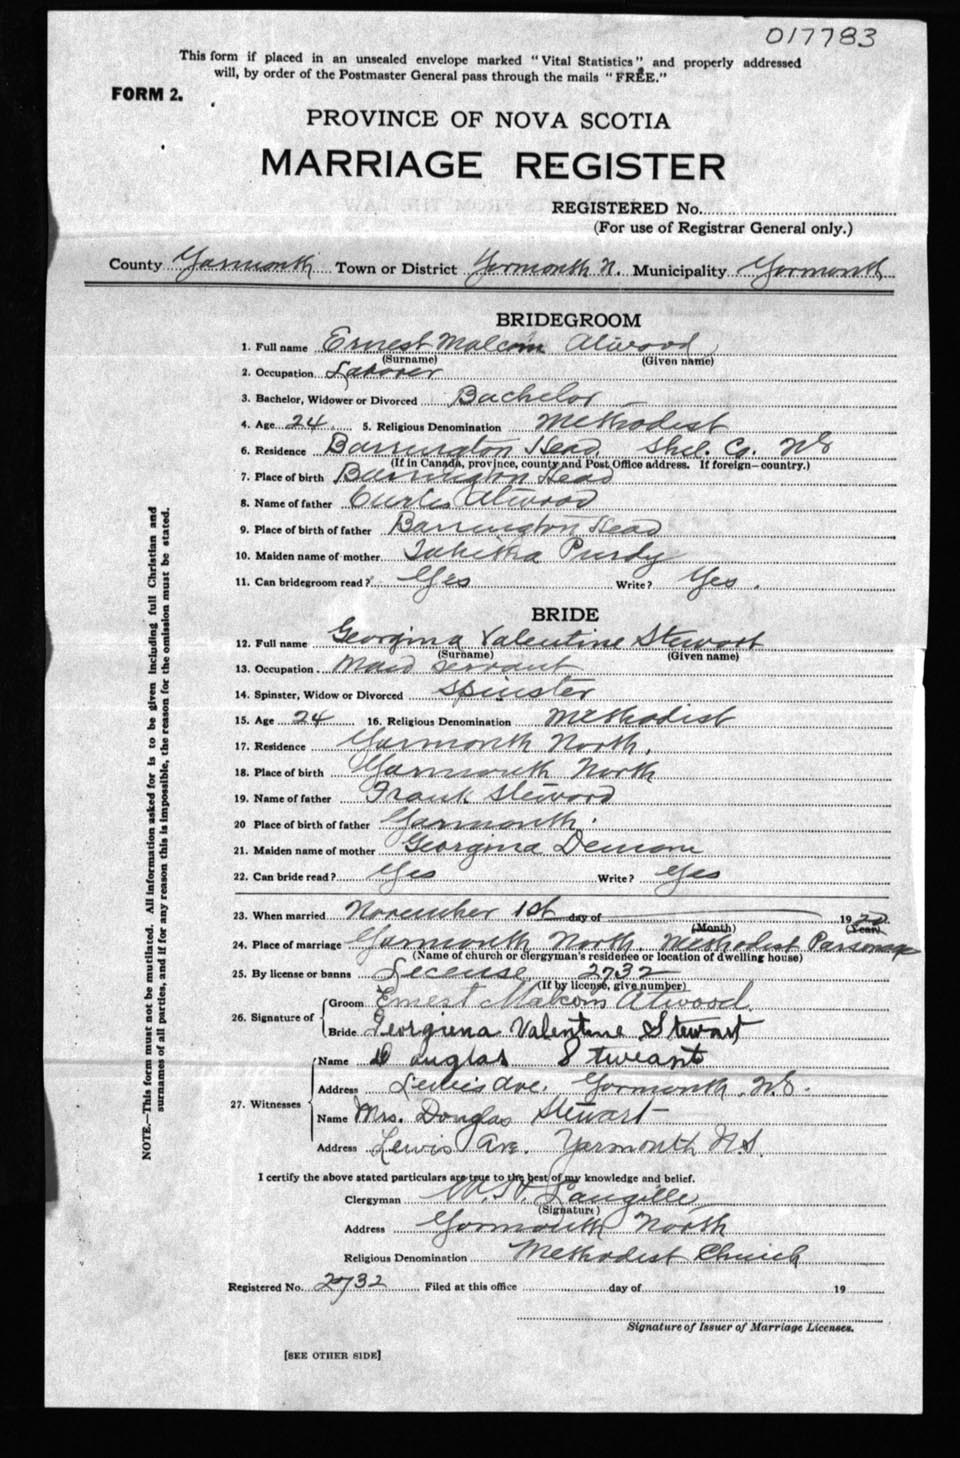 017783
This form if placed in an unsealed envelope marked "Vital Statistics" and properly addressed
will, by order of the Postmaster General pass through the mails "FREE."
FORM 2.
PROVINCE OF NOVA SCOTIA
MARRIAGE REGISTER
REGISTERED No.
(For use of Registrar General only.)
County Yarmouth Town or District Yarmouth N. Municipality Yarmouth
BRIDEGROOM
1. Full name Ernest Malcom Atwood
(Surname) (Given name)
2. Occupation Laborer
3. Bachelor, Widower or Divorced Bachelor
4. Age 24 5. Religious Denomination Methodist
6. Residence Barrington Head Shel. Co. NS
(If in Canada, province, county and Post Office address. If foreign—country.)
7. Place of birth Barrington Head
8. Name of father Curtis Atwood
9. Place of birth of father Barrington Head
10. Maiden name of mother Tabitha Purdy
11. Can bridegroom read? Yes Write? Yes.
BRIDE
12. Full name Georgina Valentine Stewart
(Surname) (Given name)
13. Occupation Maid servant
14. Spinster, Widow or Divorced Spinster
15. Age 24 16. Religious Denomination Methodist
17. Residence Yarmouth North.
18. Place of birth Yarmouth North
19. Name of father Frank Steward
20 Place of birth of father Yarmouth.
21. Maiden name of mother Georgina
22. Can bride read? Yes Write? Yes
23. When married November 1st day of 1920
(Month) (Year)
24. Place of marriage Yarmouth North. Methodist Parsonage
(Name of church or clergyman's residence or location of dwelling house)
25. By license or banns Lecense 2732
(If by license, give number)
26. Signature of
Groom Ernest Malcom Atwood
Bride Georgiena Valentine Stewart
27. Witnesses
Name Duglas Stweart
Address Lewis Ave. Yarmouth. N.S.
Name Mrs. Douglas Stewart
Address Lewis Ave. Yarmouth N.S.
I certify the above stated particulars are true to the best of my knowledge and belief.
Clergyman W. H. Langille
(Signature)
Address Yarmouth North
Religious Denomination Methodist Church
Registered No. 2732 Filed at this office day of 19
Signature of Issuer of Marriage Licenses.
[SEE OTHER SIDE]
NOTE.—This form must not be mutilated. All information asked for is to be given including full Christian and
surnames of all parties, and if for any reason this is impossible, the reason for the omission must be stated.